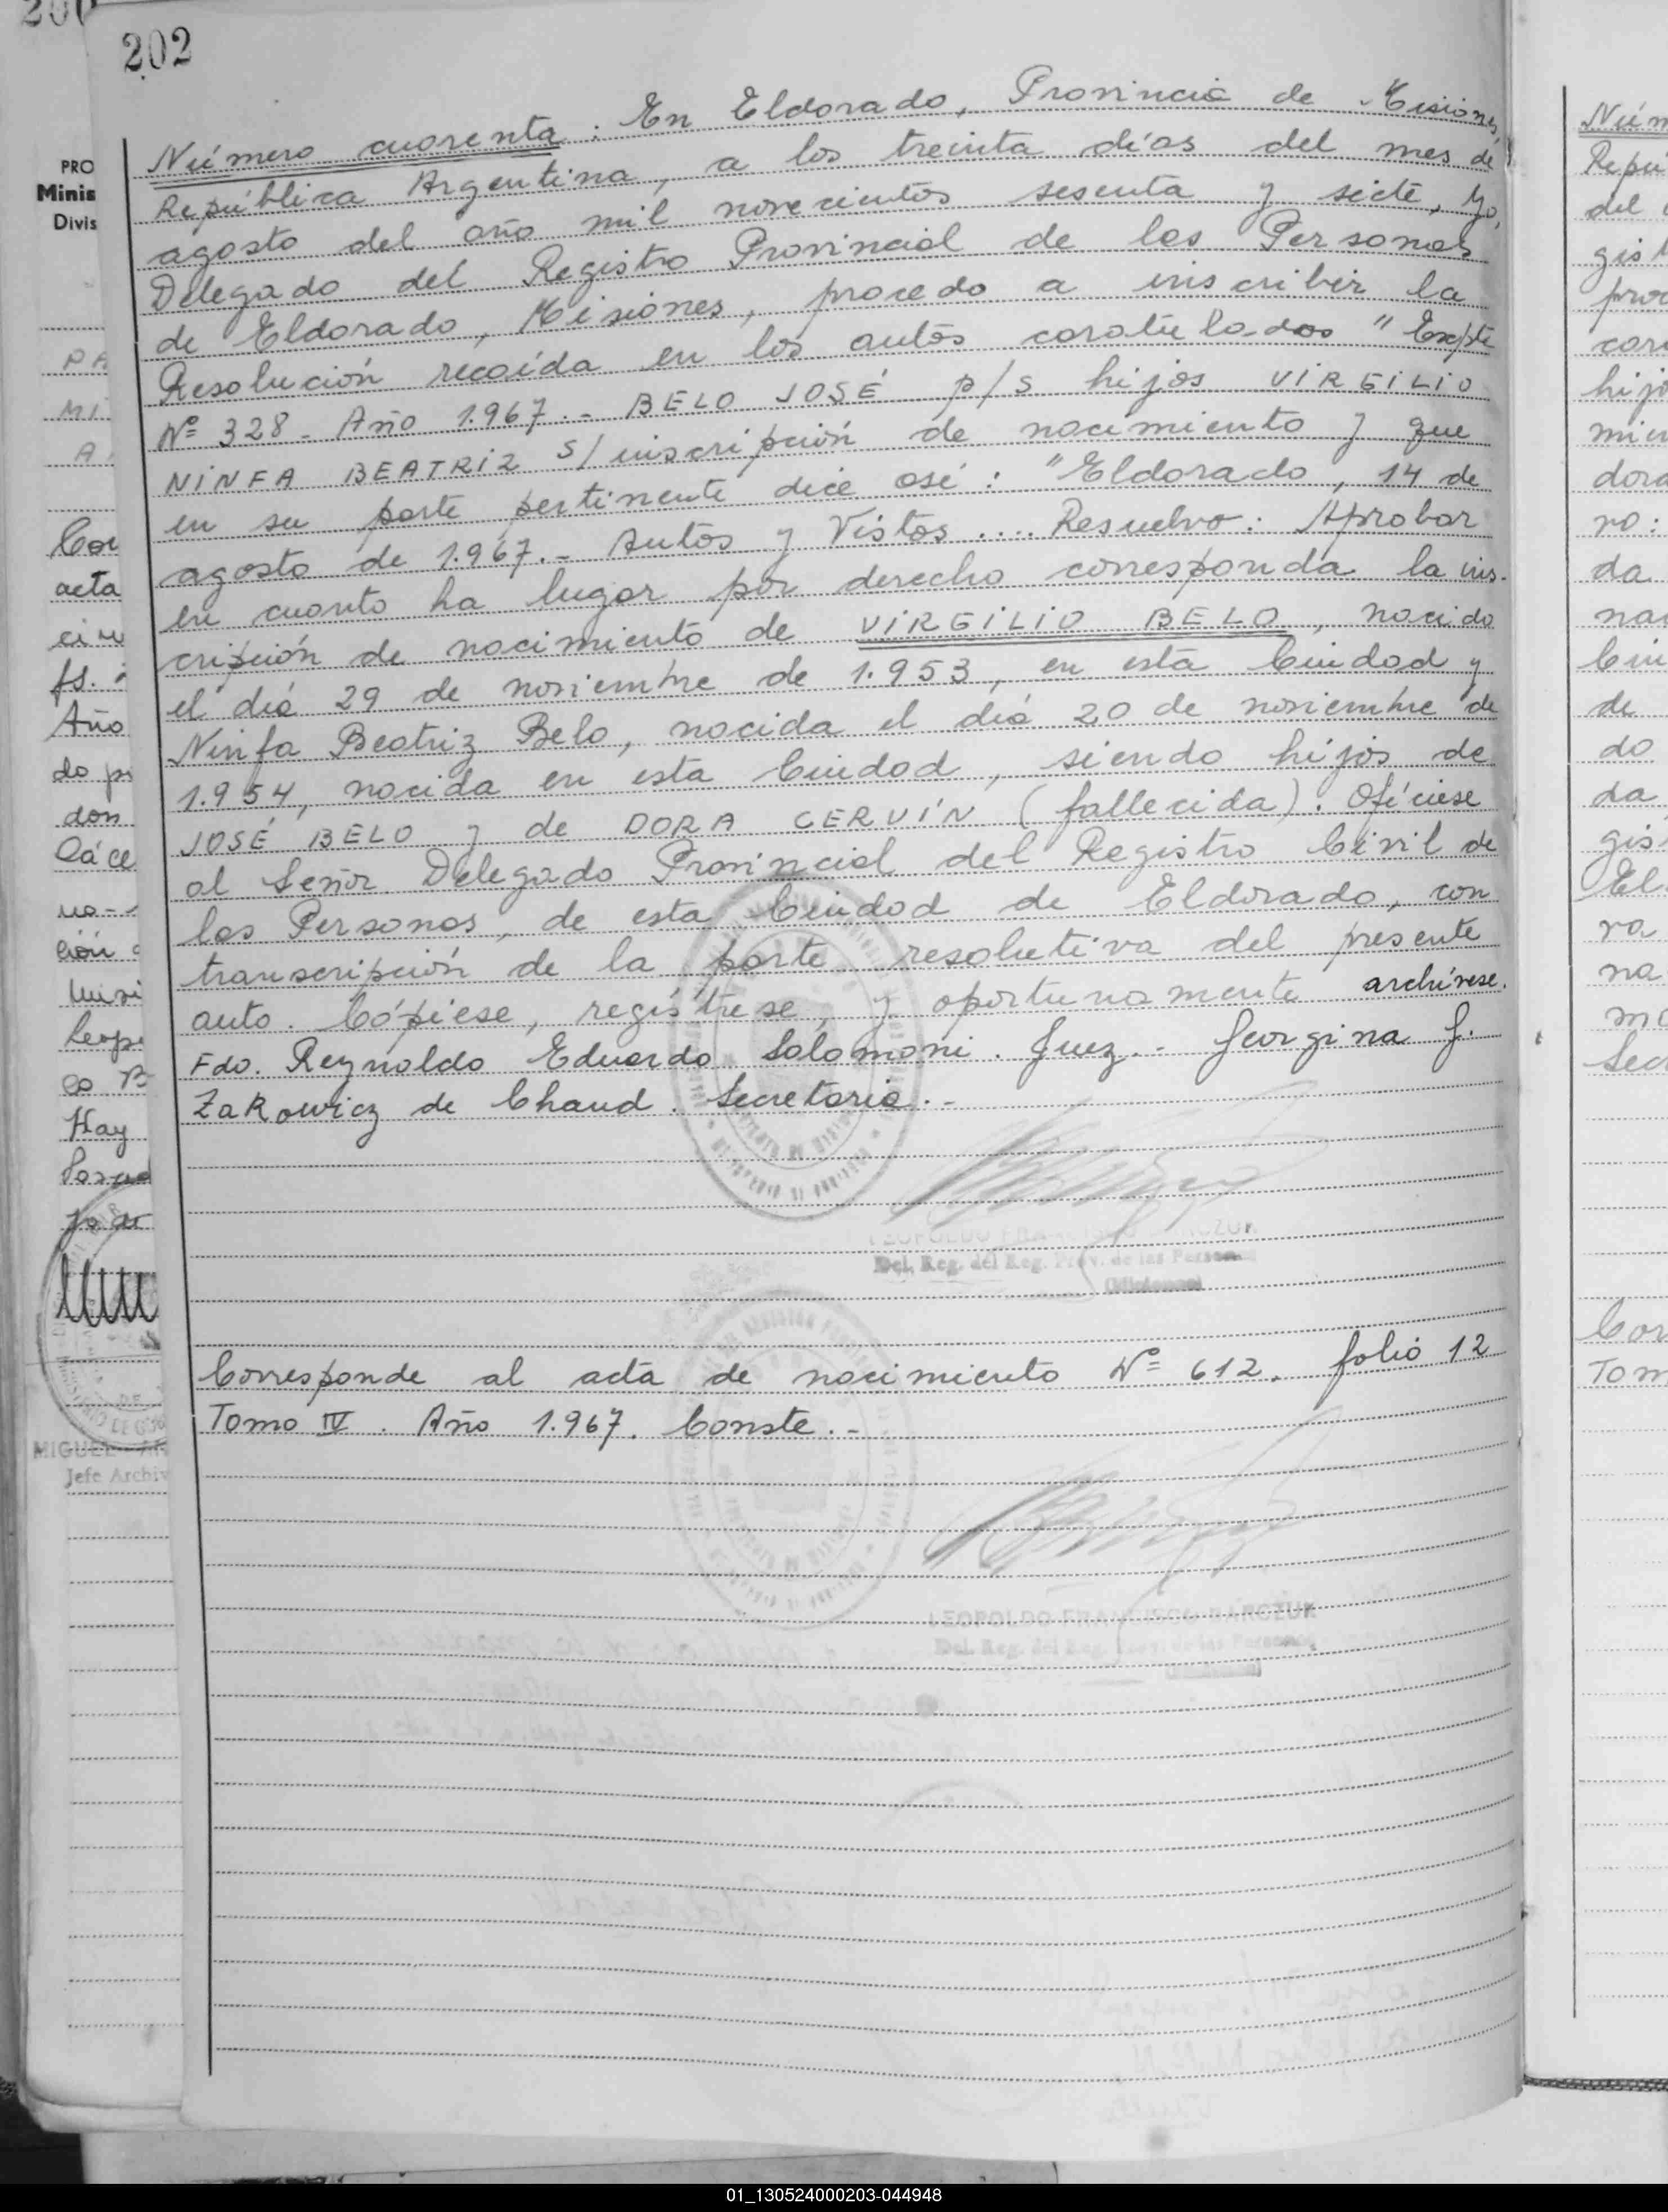 202
Número cuarenta : En Eldorado, Provincia de Misiones,
República Argentina, a los treinta días del mes de
agosto del año mil novecientos sesenta y siete, Yo,
Delegado del Registro Provincial de las Personas
de Eldorado, Misiones, procedo a inscribir la
Resolución recaída en los autos caratulados "Expte
Nº 328 - Año 1.967.- BELO JOSÉ p/s hijos VIRGILIO
NINFA BEATRIZ s/ inscripción de nacimiento y que
en su parte pertinente dice así: "Eldorado, 14 de
agosto de 1.967.- Autos y Vistos .... Resuelvo: Aprobar
en cuanto ha lugar por derecho corresponda la ins-
cripción de nacimiento de VIRGILIO BELO, nacido
el día 29 de noviembre de 1.953, en esta Ciudad y
Ninfa Beatriz Belo, nacida el día 20 de noviembre de
1.954, nacida en esta Ciudad, siendo hijos de
JOSÉ BELO y de DORA CERVÍN (fallecida). Ofíciese
al Señor Delegado Provincial del Registro Civil de
las Personas, de esta Ciudad de Eldorado, con
transcripción de la parte resolutiva del presente
auto. Cópiese, regístrese, y oportunamente archívese.
Fdo. Reynoldo Eduardo Solomoni. Juez.- Georgina J.
Zakowicz de Chaud. Secretaria.-
LEOPOLDO FRANCISCO BARCZUK
Del. Reg. del Reg. Prov. de las Personas
(Misiones)
Corresponde al acta de nacimiento Nº 612. folio 12
Tomo IV. Año 1.967. Conste.-
LEOPOLDO FRANCISCO BARCZUK
Del. Reg. del Reg. Prov. de las Personas
(Misiones)
01_130524000203-044948